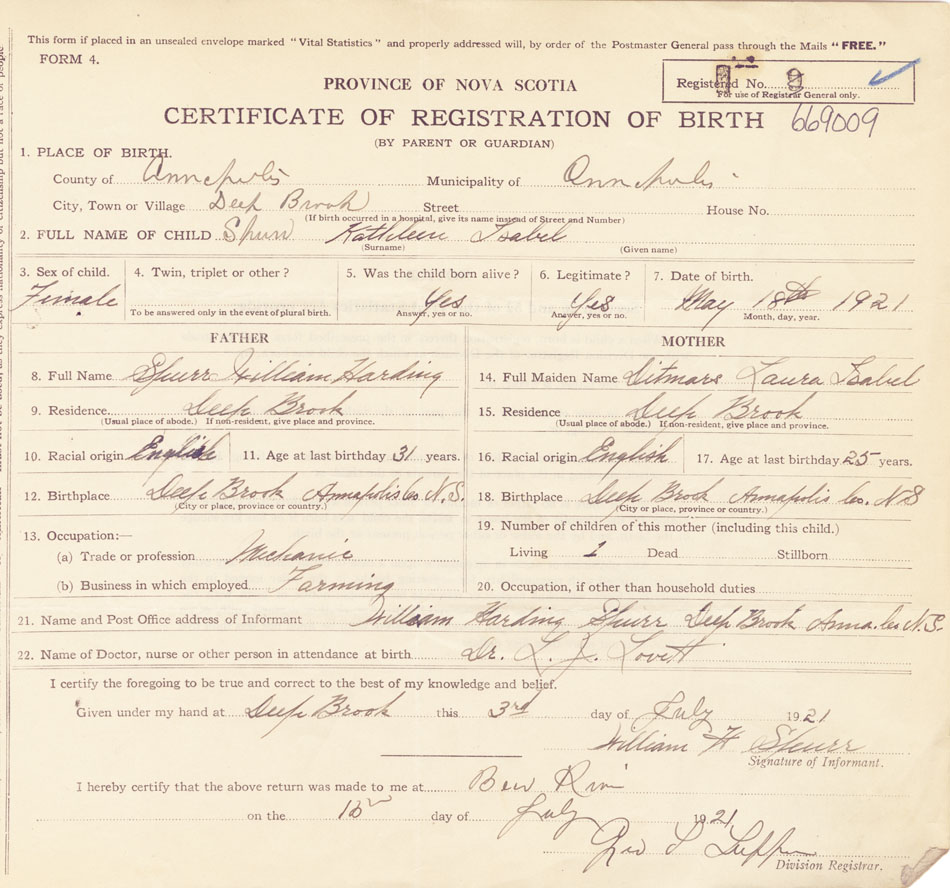 This form if placed in an unsealed envelope marked "Vital Statistics" and properly addressed will, by order of the Postmaster General pass through the Mails "FREE."
FORM 4.
PROVINCE OF NOVA SCOTIA
Registered No.
For use of Registrar General only.
CERTIFICATE OF REGISTRATION OF BIRTH 669009
(BY PARENT OR GUARDIAN)
1. PLACE OF BIRTH.
County of Annapolis Municipality of Annapolis
City, Town or Village Deep Brook Street House No.
(If birth occurred in a hospital, give its name instead of Street and Number)
2. FULL NAME OF CHILD Spurr Kathleen Isabel
(Surname) (Given name)
3. Sex of child. 4. Twin, triplet or other? 5. Was the child born alive? 6. Legitimate? 7. Date of birth.
Female Yes Yes May 18th 1921
To be answered only in the event of plural birth. Answer, yes or no. Answer, yes or no. Month, day, year.
FATHER
8. Full Name Spurr William Harding
9. Residence Deep Brook
(Usual place of abode.) If non-resident, give place and province.
10. Racial origin English 11. Age at last birthday 31 years.
12. Birthplace Deep Brook Annapolis Co. N.S.
(City or place, province or country.)
13. Occupation:—
(a) Trade or profession Mechanic
(b) Business in which employed Farming
MOTHER
14. Full Maiden Name Ditmars Laura Isabel
15. Residence Deep Brook
(Usual place of abode.) If non-resident, give place and province.
16. Racial origin English 17. Age at last birthday 25 years.
18. Birthplace Deep Brook Annapolis Co. N.S
(City or place, province or country.)
19. Number of children of this mother (including this child.)
Living 1 Dead Stillborn
20. Occupation, if other than household duties
21. Name and Post Office address of Informant William Harding Spurr Deep Brook Anna. Co N.S.
22. Name of Doctor, nurse or other person in attendance at birth Dr. L. J. Lovett
I certify the foregoing to be true and correct to the best of my knowledge and belief.
Given under my hand at Deep Brook this 3rd day of July 1921
William H Spurr
Signature of Informant.
I hereby certify that the above return was made to me at
on the day of July 1921
Division Registrar.